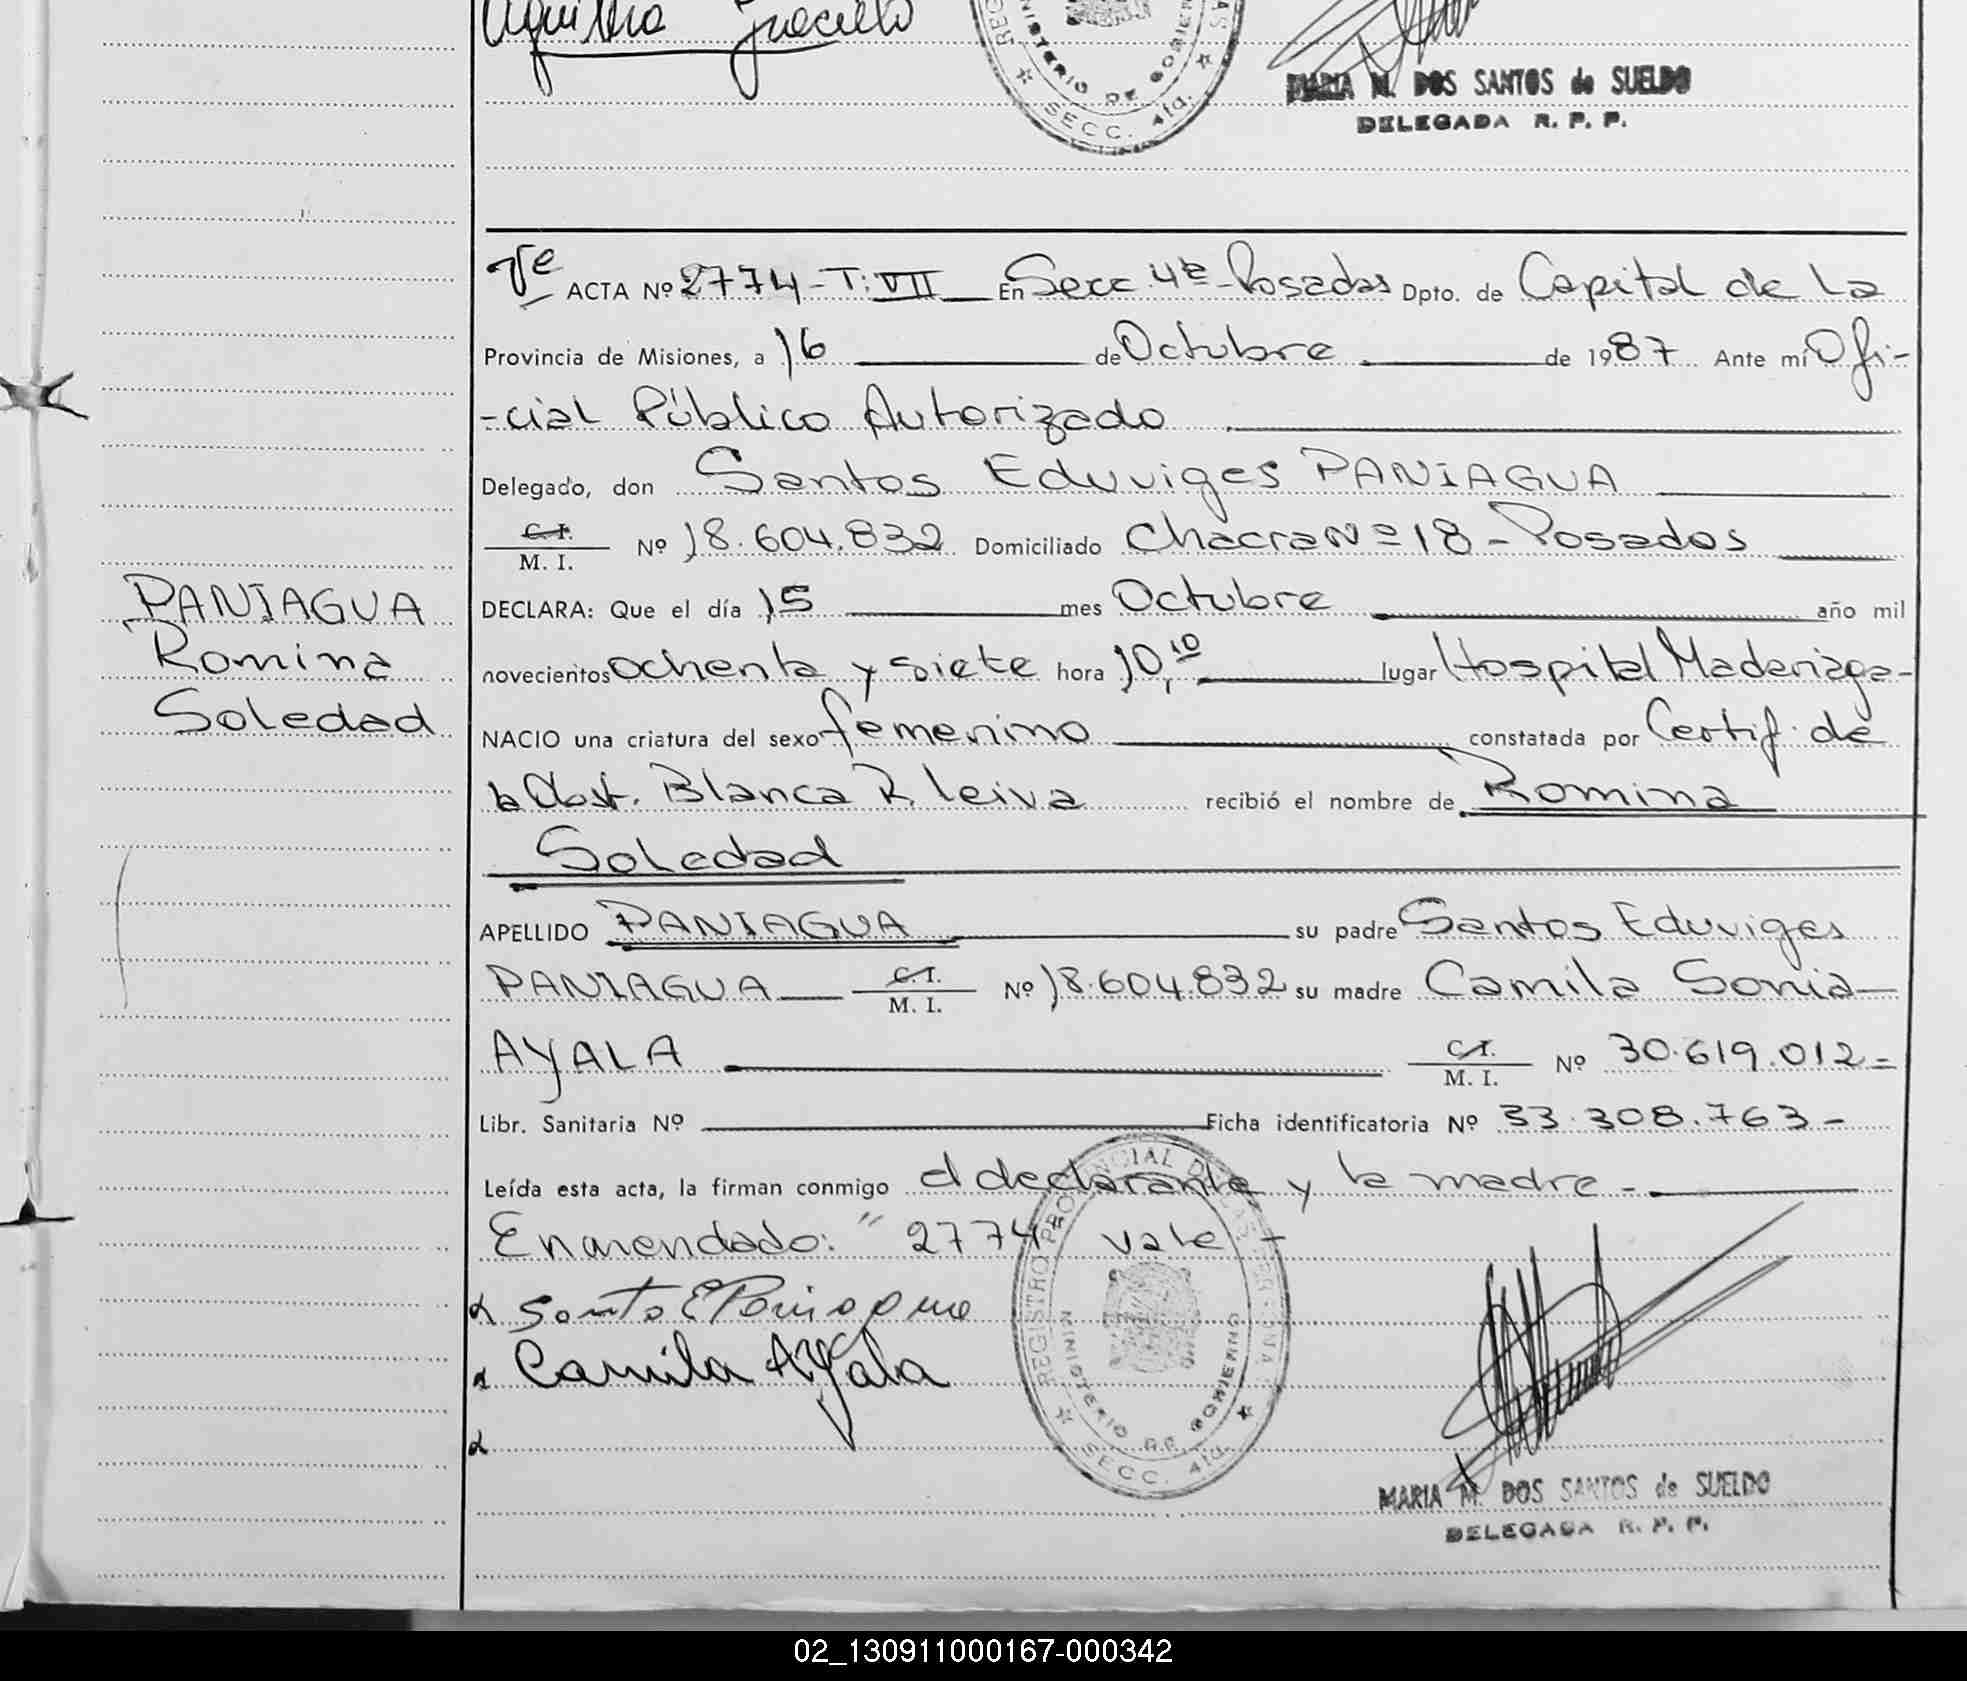 Aquilino Jacinto
MINISTERIO DE GOBIERNO
SECC. 4ta.
MARIA M. DOS SANTOS de SUELDO
DELEGADA R. P. P.
ACTA Nº 2774-T: VII En Secc. 4ª-Posadas Dpto. de Capital de la
Provincia de Misiones, a 16 de Octubre de 1987 Ante mí Ofi-
-cial Público Autorizado
Delegado, don Santos Eduviges PANIAGUA
C. I.
M. I. Nº 18.604.832 Domiciliado Chacra Nº 18 - Posadas
PANIAGUA
Romina
Soledad
DECLARA: Que el día 15 mes Octubre año mil
novecientos ochenta y siete hora 10,10 lugar Hospital Madariaga-
NACIO una criatura del sexo femenino constatada por Certif. de
la Obst. Blanca R. Leiva recibió el nombre de Romina
Soledad
APELLIDO PANIAGUA su padre Santos Eduviges
PANIAGUA C. I.
M. I. Nº 18.604.832 su madre Camila Sonia
AYALA C. I.
M. I. Nº 30.619.012=
Libr. Sanitaria Nº Ficha identificatoria Nº 33.308.763-
Leída esta acta, la firman conmigo el declarante y la madre -
Enmendado: " 2774 vale -
Santo E Paniagua
Camila Ayala
REGISTRO PROVINCIAL DE LAS PERSONAS
MINISTERIO DE GOBIERNO
SECC. 4ta.
MARIA M. DOS SANTOS de SUELDO
DELEGADA R. P. P.
02_130911000167-000342